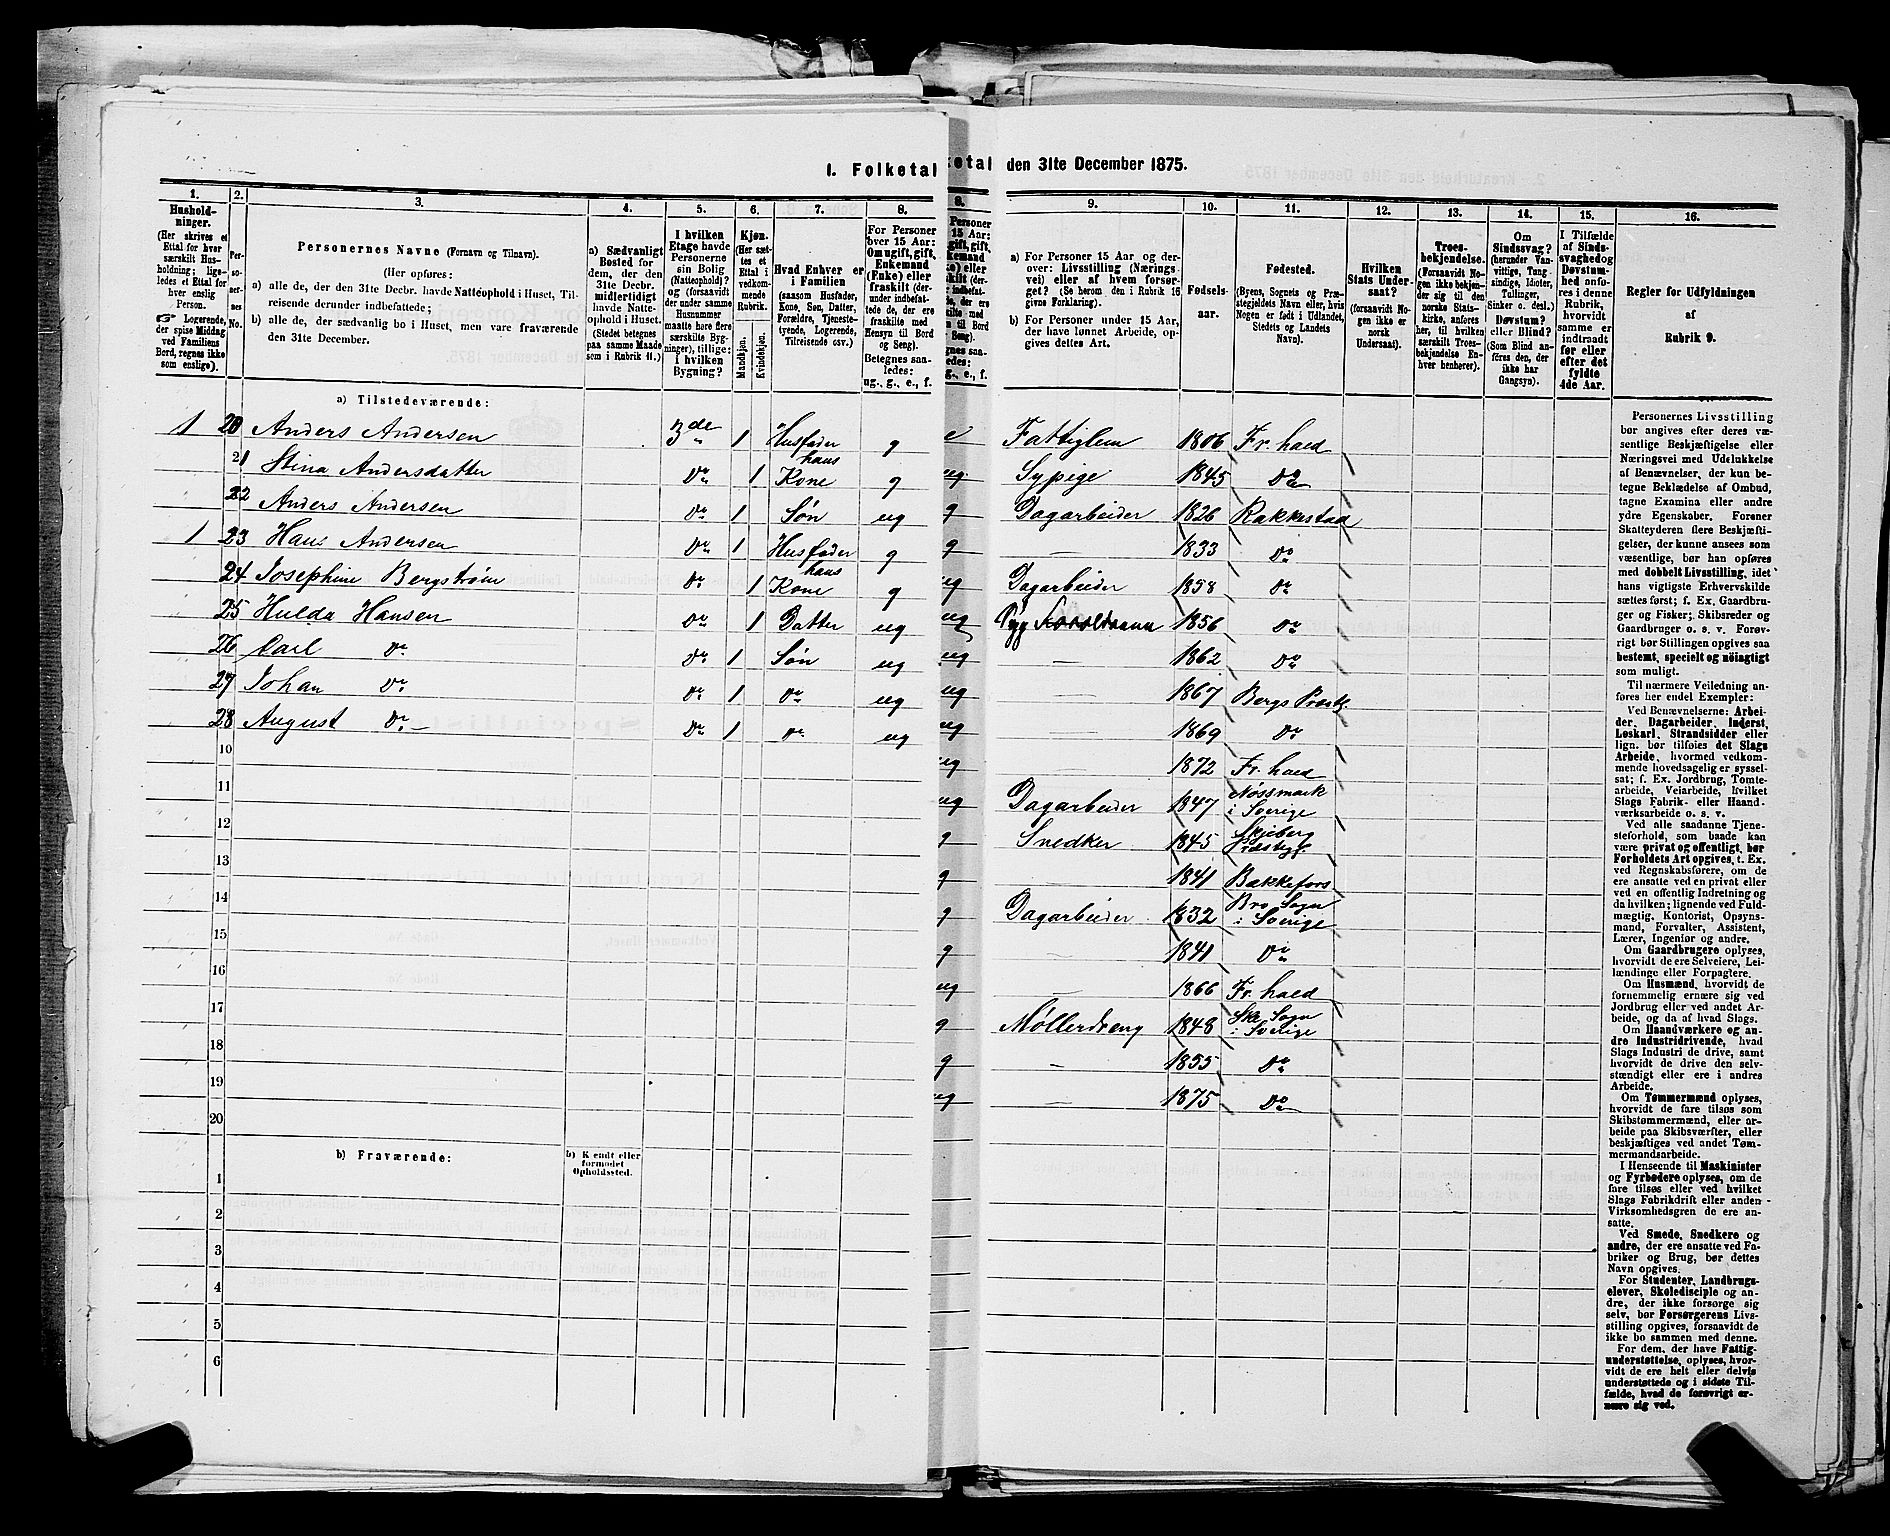 I. Folketal
ketal den 31te December 1875.
1. 2. 3. 4. 5. 6. 7. 8.
Husholdninger.
(Her skrives et Ettal for hver særskilt Husholdning; ligeledes et Ettal for hver enslig Person.
☞ Logerende, der spise Middag ved Familiens Bord, regnes ikke som enslige).
Personernes No.
Personernes Navne (Fornavn og Tilnavn).
(Her opføres:
a) alle de, der den 31te Decbr. havde Natteophold i Huset, Tilreisende derunder indbefattede;
b) alle de, der sædvanlig bo i Huset, men vare fraværende den 31te December.
a) Sædvanligt Bosted for dem, der den 31te Decbr. midlertidigt havde Natteophold i Huset.
(Stedet betegnes paa samme Maade som i Rubrik 11.)
I hvilken Etage havde Personerne sin Bolig (Natteophold)?
og (forsaavidt der under samme Husnummer maatte høre flere særskilte Bygninger), tillige: I hvilken Bygning?
Kjøn.
(Her sættes et Ettal i vedkommende Rubrik.
Mandkjøn.
Kvindekjøn.
Hvad Enhver er i Familien
(saasom Husfader, Kone, Søn, Datter, Forældre, Tjenestetyende, Logerende, Tilreisende osv.)
For Personer over 15 Aar: Om ugift, gift, Enkemand (Enke) eller fraskilt (derunder indbefattede de, der ere fraskilte med Hensyn til Bord og Seng).
Betegnes saaledes:
ug., g., e., f.
a) Tilstedeværende:
1 20 Anders Andersen 3de 1 Husfader g
21 Stina Andersdatter Do 1 hans Kone g
22 Anders Andersen Do 1 Søn ug
1 23 Hans Andersen Do 1 Husfader g
24 Josephine Bergstrøm Do 1 hans Kone g
25 Hulda Hansen Do 1 Datter ug
26 Carl Do Do 1 Søn ug
27 Johan Do Do 1 Do ug
28 August Do Do 1 Do ug
10
11
12
13
14
15
16
17
18
19
20
b) Fraværende:
b) Kjendt eller formodet Opholdssted.
1
2
3
4
5
6
9. 10. 11. 12. 13. 14. 15. 16.
a) For Personer 15 Aar og derover: Livsstilling (Næringsvei) eller af hvem forsørget? (Se herom den i Rubrik 16 givne Forklaring).
b) For Personer under 15 Aar, der have lønnet Arbeide, opgives dettes Art.
Fødselsaar.
Fødested.
(Byens, Sognets og Præstegjeldets Navn eller, hvis Nogen er født i Udlandet, Stedets og Landets Navn).
Hvilken Stats Undersaat?
(forsaavidt Nogen ikke er norsk Undersaat).
Troesbekjendelse.
(Forsaavidt Nogen ikke bekjender sig til den norske Statskirke, anføres her, til hvilken særskilt Troesbekjendelse Enhver henhører).
Om Sindssvag?
(herunder Vanvittige, Tungsindige, Idioter, Tullinger, Sinker o. desl.)
Døvstum? eller Blind?
(Som Blind anføres den, der ikke har Gangsyn).
I Tilfælde af Sindssvaghed og Døvstumhed anføres i denne Rubrik, hvorvidt samme er indtraadt før eller efter det fyldte 4de Aar.
Regler for Udfyldningen
af
Rubrik 9.
e Fattiglem 1806 Fr. hald
ug Sypige 1845 Do
g Dagarbeider 1826 Rakkestad
g — 1833 Do
ug Dagarbeider 1858 Do
ug 1856 Do
ug — 1862 Do
ug — 1867 Bergs Præstg.
ug — 1869 Do
ug 1872 Fr. hald
ug Dagarbeider 1847 Nøssmark i Sverige
g Snedker 1845 Skjeberg
g 1841 Bakkefors
g Dagarbeider 1832 Bro Sogn i Sverige
g — 1841 Do
ug — 1866 Fr. hald
g Møllerdreng 1848 Sogn i Sverige
g — 1855 Do
ug — 1875 Do
Personernes Livsstilling bør angives efter deres væsentlige Beskjæftigelse eller Næringsvei med Udelukkelse af Benævnelser, der kun betegne Beklædelse af Ombud, tagne Examina eller andre ydre Egenskaber. Forener Skatteyderen flere Beskjæftigelser, der kunne ansees som væsentlige, bør han opføres med dobbelt Livsstilling, idet hans vigtigste Erhvervskilde sættes først; f. Ex. Gaardbruger og Fisker; Skibsreder og Gaardbruger o. s. v. Forøvrigt bør Stillingen opgives saa bestemt, specielt og nöiagtigt som muligt.
Til nærmere Veiledning anføres her endel Exempler:
Ved Benævnelserne: Arbeider, Dagarbeider, Inderst, Løskarl, Strandsidder eller lign. bør tilføies det Slags Arbeide, hvormed vedkommende hovedsagelig er sysselsat; f. Ex. Jordbrug, Tomtearbeide, Veiarbeide, hvilket Slags Fabrik- eller Haandværksarbeide o. s. v.
Ved alle saadanne Tjenesteforhold, som baade kan være privat og offentligt, bør Forholdets Art opgives, t. Ex. ved Regnskabsførere, om de ere ansatte ved en privat eller ved en offentlig Indretning og da hvilken; lignende ved Fuldmægtig, Kontorist, Opsynsmand, Forvalter, Assistent, Lærer, Ingeniør og andre.
Om Gaardbrugere oplyses, hvorvidt de ere Selveiere, Leilændinge eller Forpagtere.
Om Husmænd, hvorvidt de fornemmelig ernære sig ved Jordbrug eller ved andet Arbeide, og da af hvad Slags.
Om Haandværkere og andre Industridrivende, hvad Slags Industri de drive, samt hvorvidt de drive den selvstændigt eller ere i andres Arbeide.
Om Tømmermænd oplyses, hvorvidt de fare tilsøs som Skibstømmermænd, eller arbeide paa Skibsværfter, eller beskjæftiges ved andet Tømmermandsarbeide.
I Henseende til Maskinister og Fyrbødere oplyses, om de fare tilsøs eller ved hvilket Slags Fabrikdrift eller anden Virksomhedsgren de ere ansatte.
Ved Smede, Snedkere og andre, der ere ansatte ved Fabriker og Brug, bør dettes Navn opgives.
For Studenter, Landbrugselever, Skoledisciple og andre, der ikke forsørge sig selv, bør Forsørgerens Livsstilling opgives, forsaavidt de ikke bo sammen med denne.
For dem, der have Fattigunderstøttelse, oplyses, hvorvidt de ere helt eller delvis understøttede og i sidste Tilfælde, hvad de forøvrigt ernære sig ved.